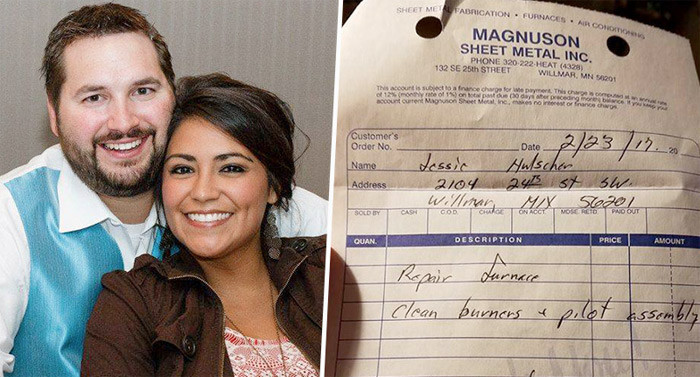 SHEET METAL FABRICATION • FURNACES • AIR CONDITIONING
MAGNUSON
SHEET METAL INC.
PHONE 320-222-HEAT (4328)
132 SE 25th STREET WILLMAR, MN 56201
This account is subject to a finance charge for late payment. This charge is computed at an annual rate
of 12% (monthly rate of 1%) on total past due (30 days after preceding month) balance. If you keep your
account current Magnuson Sheet Metal, Inc., makes no interest or finance charge.
Customer's
Order No. Date 2/23/17 20
Name Jessie Hulscher
Address 2104 24th St SW
Willmar, MN 56201
SOLD BY CASH C.O.D. CHARGE ON ACCT. MDSE. RETD. PAID OUT
QUAN. DESCRIPTION PRICE AMOUNT
Repair furnace
Clean burners & pilot assembly